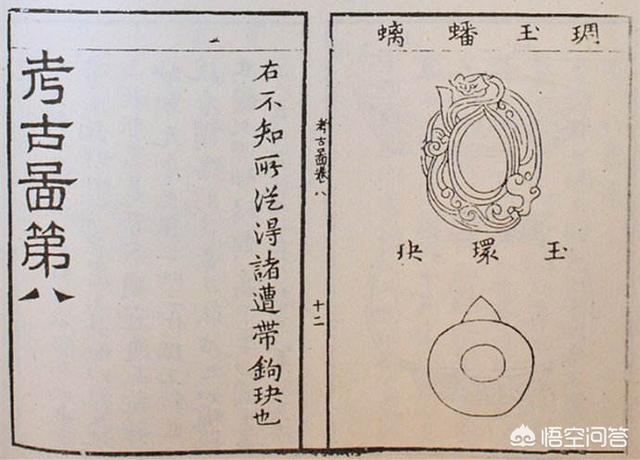 琱玉蟠螭
玉環玦
考古圖卷八
十二
右不知所從得諸遭帶鉤玦也
考古圖第八
悟空问答